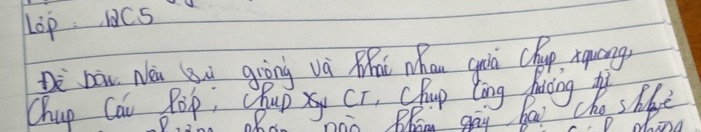 Lớp: 12C5
Đề bài: Nêu sự giống và khác nhau giữa chụp xquang,
Chụp Cắt lớp, chụp CT, chụp Cộng hưởng từ
phương pháp nào không gây hại cho s khỏe